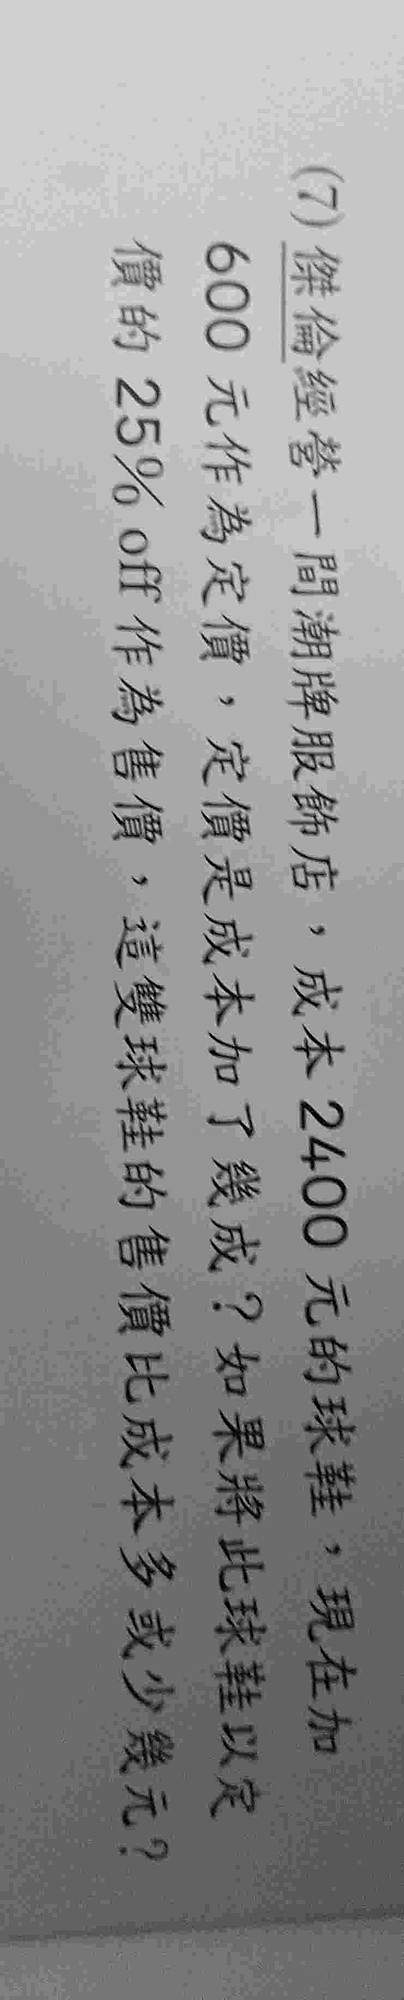 (7) 傑倫經營一間潮牌服飾店，成本 2400 元的球鞋，現在加
600 元作為定價，定價是成本加了幾成？如果將此球鞋以定
價的 25% off 作為售價，這雙球鞋的售價比成本多或少幾元？